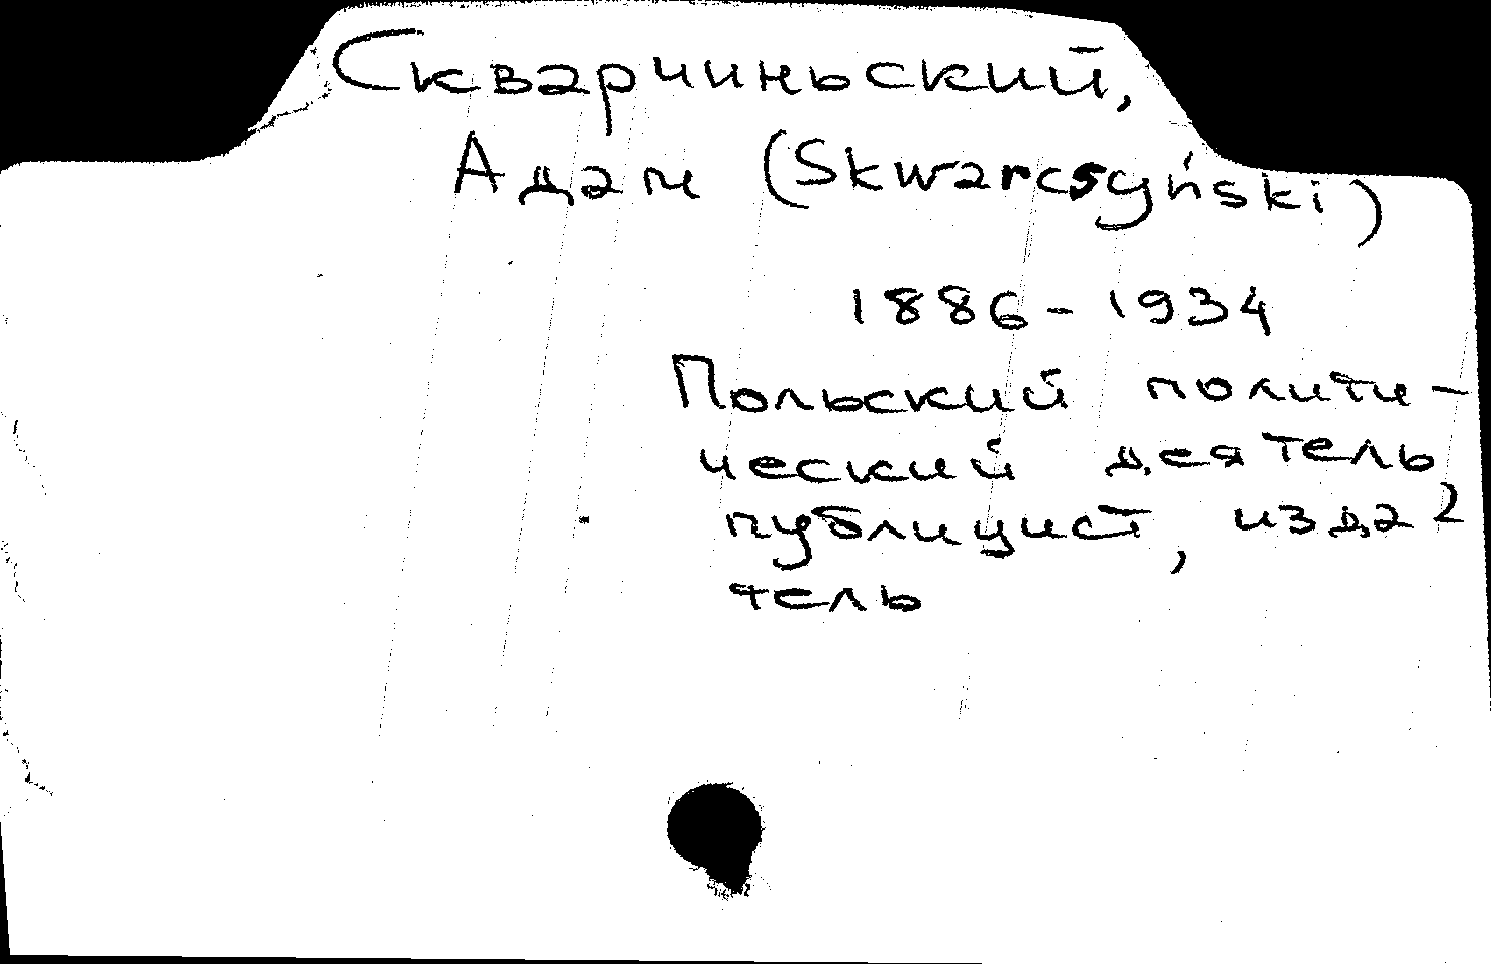 Скварчиньский,
Адам (Skwarcsyński)
1886-1934
Польский полити-
ческий деятель,
публицист, изда-
тель